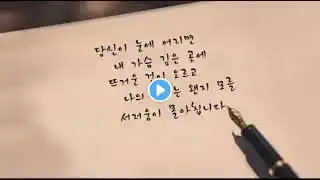 당신이 눈에 어리면
내 가슴 깊은 곳에
뜨거운 것이 오르고
나의 는 왠지 모를
서러움이 몰아칩니다